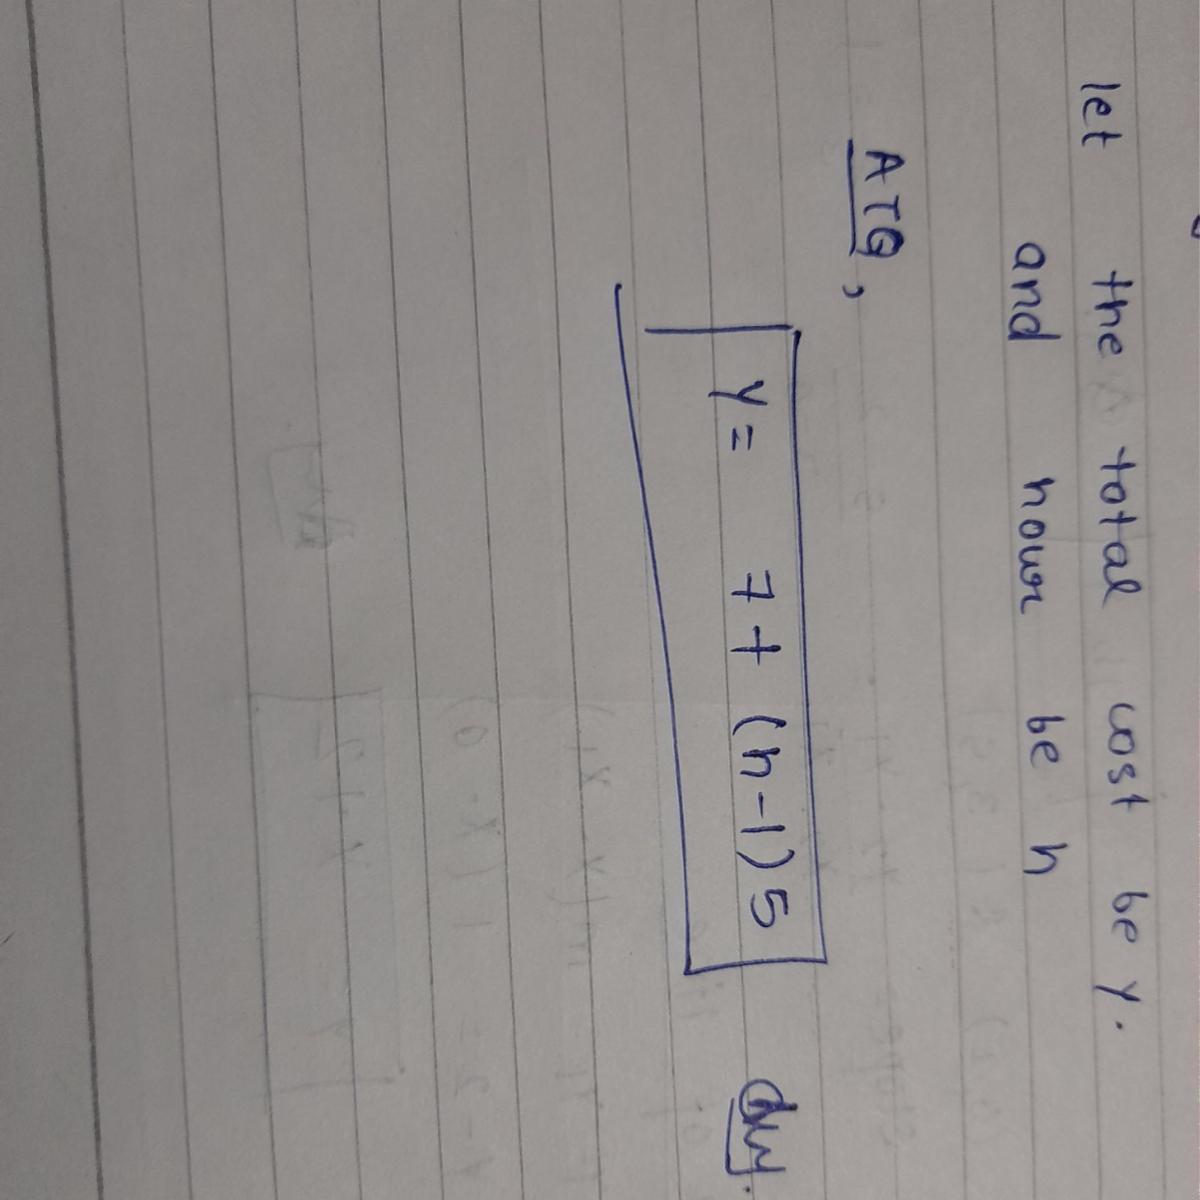 let the total cost be y.
and hour be h
ATQ,
y = 7 + (h-1) 5